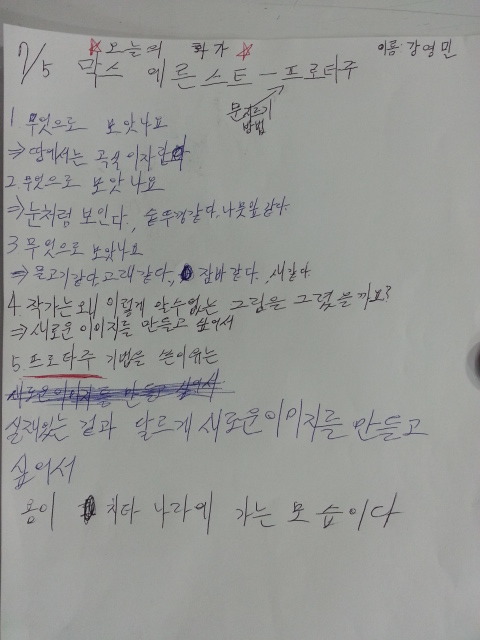 ☆오늘의 화가☆ 이름:강영민
7/5 막스 에른스트-프로타주
문지르기 방법
1 무엇으로 보앗나요
⇒땅에서는 곡식 이자
2 무엇으로 보앗나요
⇒눈처럼 보인다, 솥뚜껑같다. 나뭇잎같다.
3 무엇으로 보앗나요
⇒물고기같다.고래같다, 잠바같다, 새같다.
4. 작가는 왜 이렇게 알수없는 그림을 그렸을까요?
⇒새로운 이이지를 만들고 싶어서
5. 프로타주 기법을 쓴이유는
새로운이이지를 만들고 싶어서
실재있는 겉과 달르게 새로운이이지를 만들고
싶어서
용이 치타 나라에 가는 모습이다